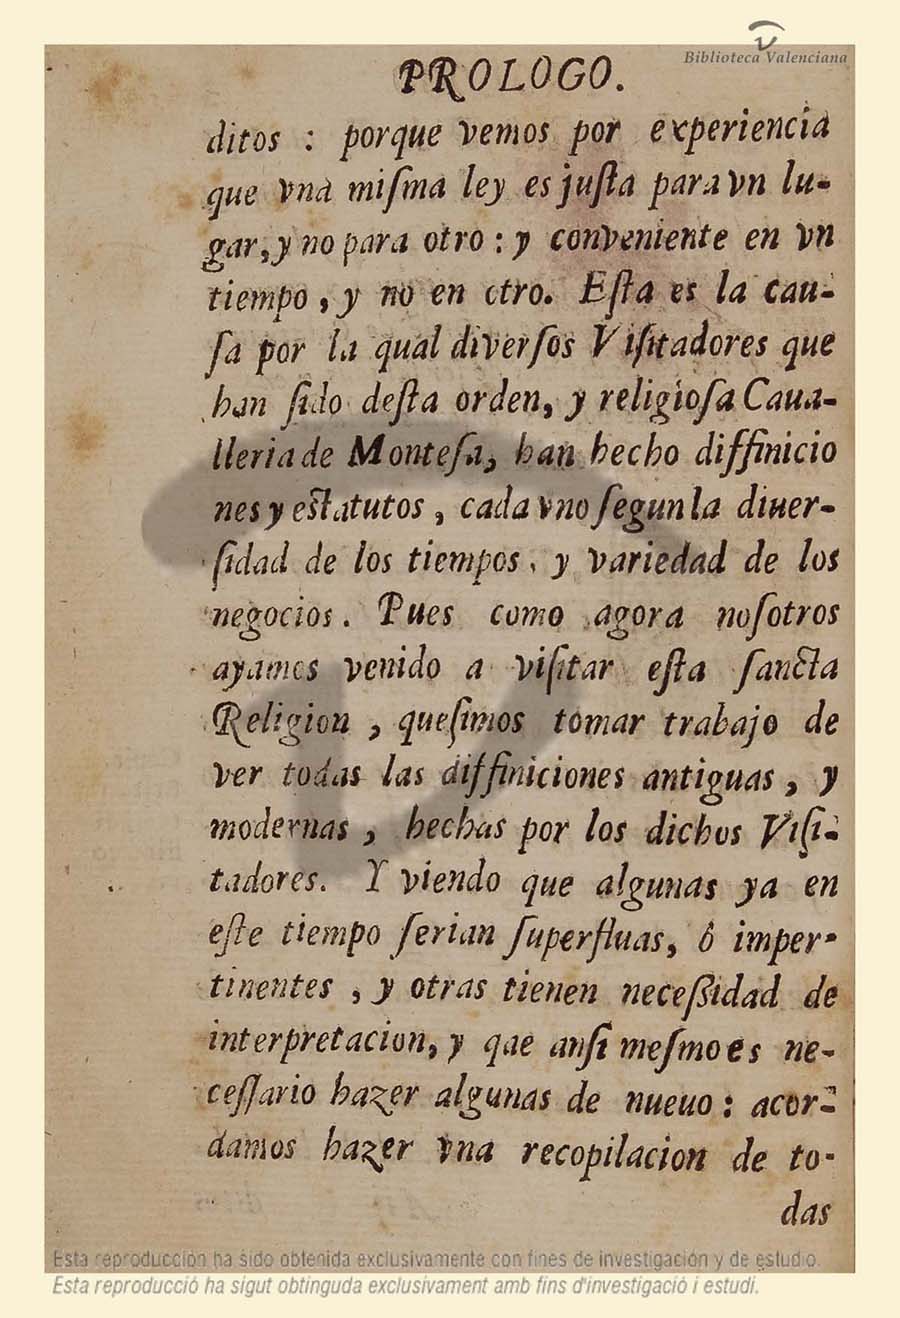 Biblioteca Valenciana
PROLOGO.
ditos : porque vemos por experiencia
que vna miſma ley es juſta para vn lu-
gar, y no para otro : y conveniente en vn
tiempo , y no en otro. Eſta es la cau-
ſa por la qual diverſos Viſitadores que
han ſido deſta orden, y religioſa Caua-
lleria de Monteſa, han hecho diffinicio
nes y eſtatutos , cada vno ſegun la diuer-
ſidad de los tiempos , y variedad de los
negocios . Pues como agora noſotros
ayamos venido a viſitar eſta ſancta
Religion , queſimos tomar trabajo de
ver todas las diffiniciones antiguas , y
modernas , hechas por los dichos Viſi-
tadores. Y viendo que algunas ya en
eſte tiempo ſerian ſuperfluas, ô imper-
tinentes , y otras tienen neceſsidad de
interpretacion, y que anſi meſmo es ne-
ceſſario hazer algunas de nueuo : acor-
damos hazer vna recopilacion de to-
das
Esta reproducción ha sido obtenida exclusivamente con fines de investigación y de estudio.
Esta reproducció ha sigut obtinguda exclusivament amb fins d'investigació i estudi.